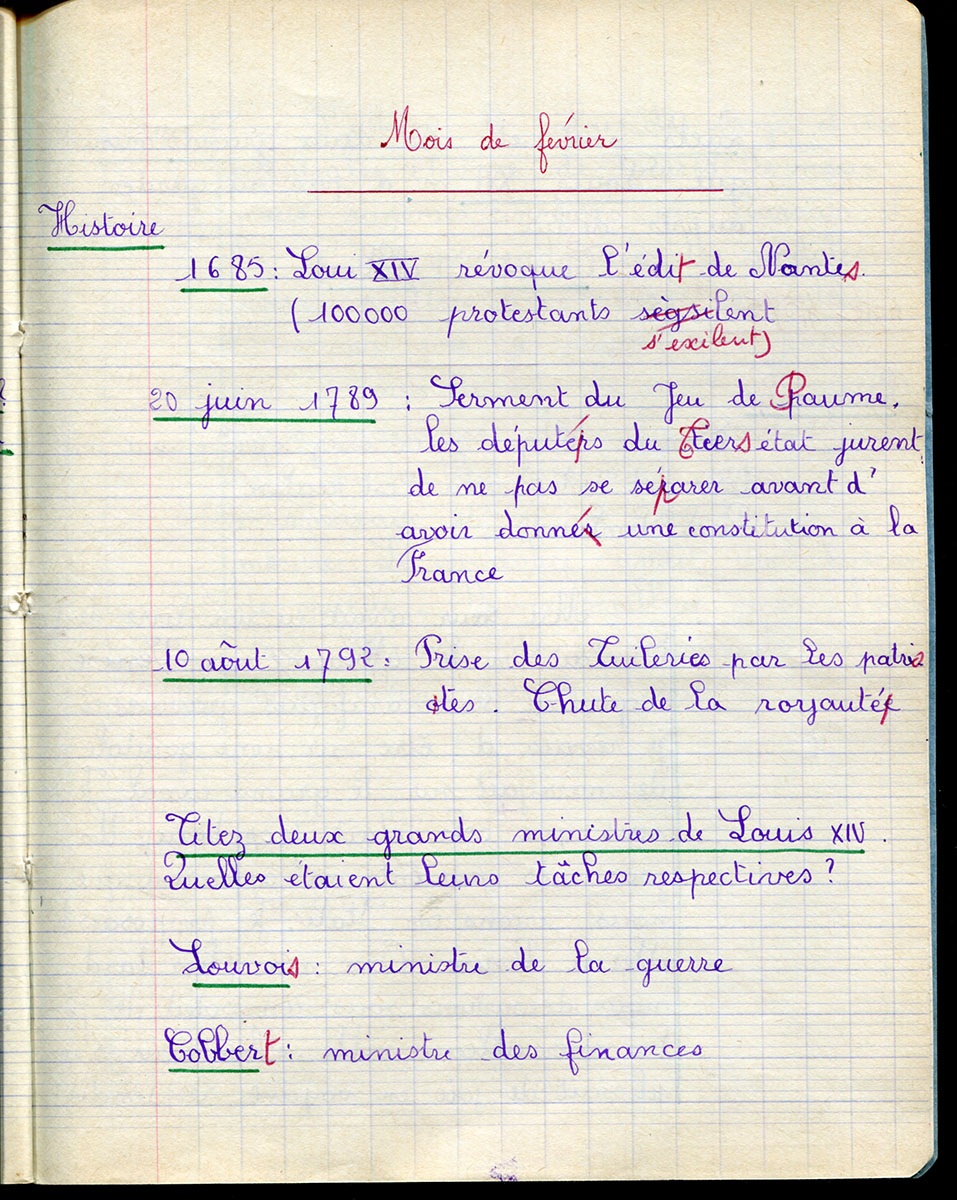 Mois de février
Histoire
1685 : Loui XIV révoque l'édit de Nantes.
(100000 protestants sègsilent
s'exilent)
20 juin 1789 : Serment du Jeu de Paume.
les députés du Tiers état jurent
de ne pas se séparer avant d'
avoir donné une constitution à la
France
10 aôut 1792 : Prise des Tuileries par les patrio
tes. Chute de la royauté
Citez deux grands ministres de Louis XIV.
Quelles étaient leurs tâches respectives ?
Louvois : ministre de la guerre
Colbert : ministre des finances